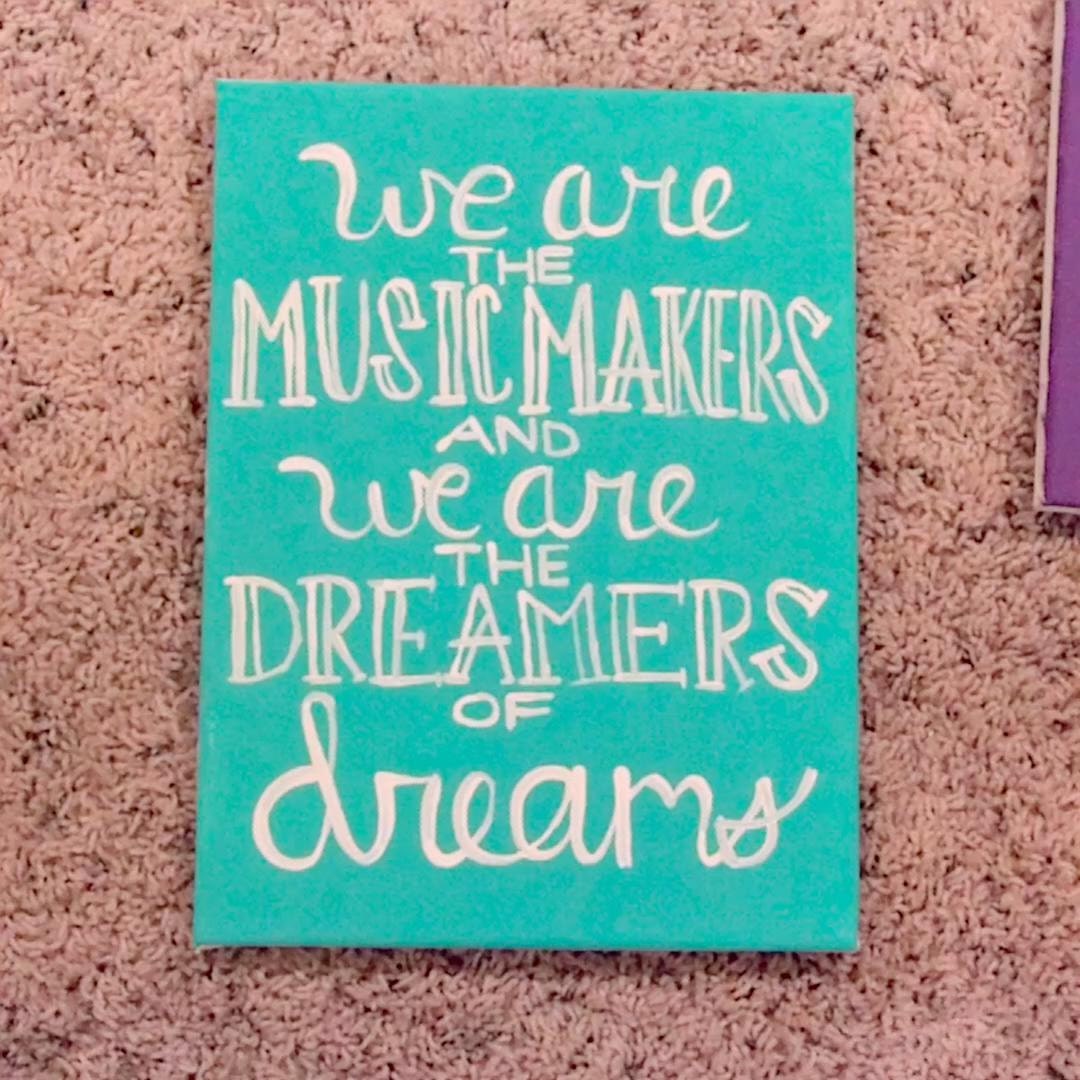 we are
THE
MUSIC MAKERS
AND
we are
THE
DREAMERS
OF
dreams